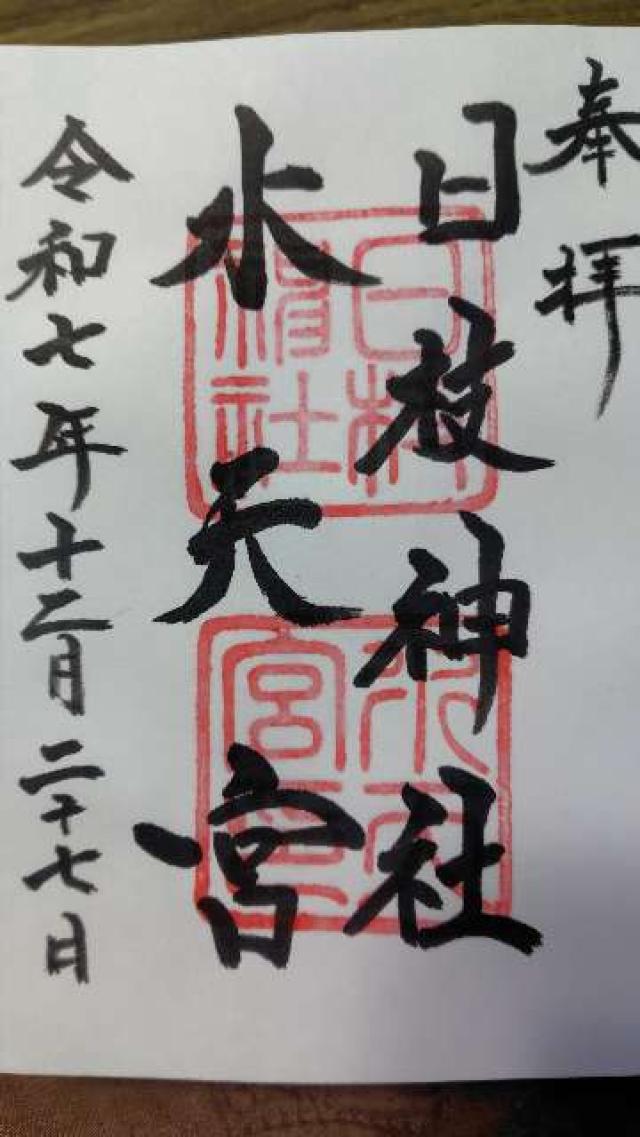 奉拝
日枝神社
水天宮
令和七年十二月二十七日
日枝
神社
水天
宮印